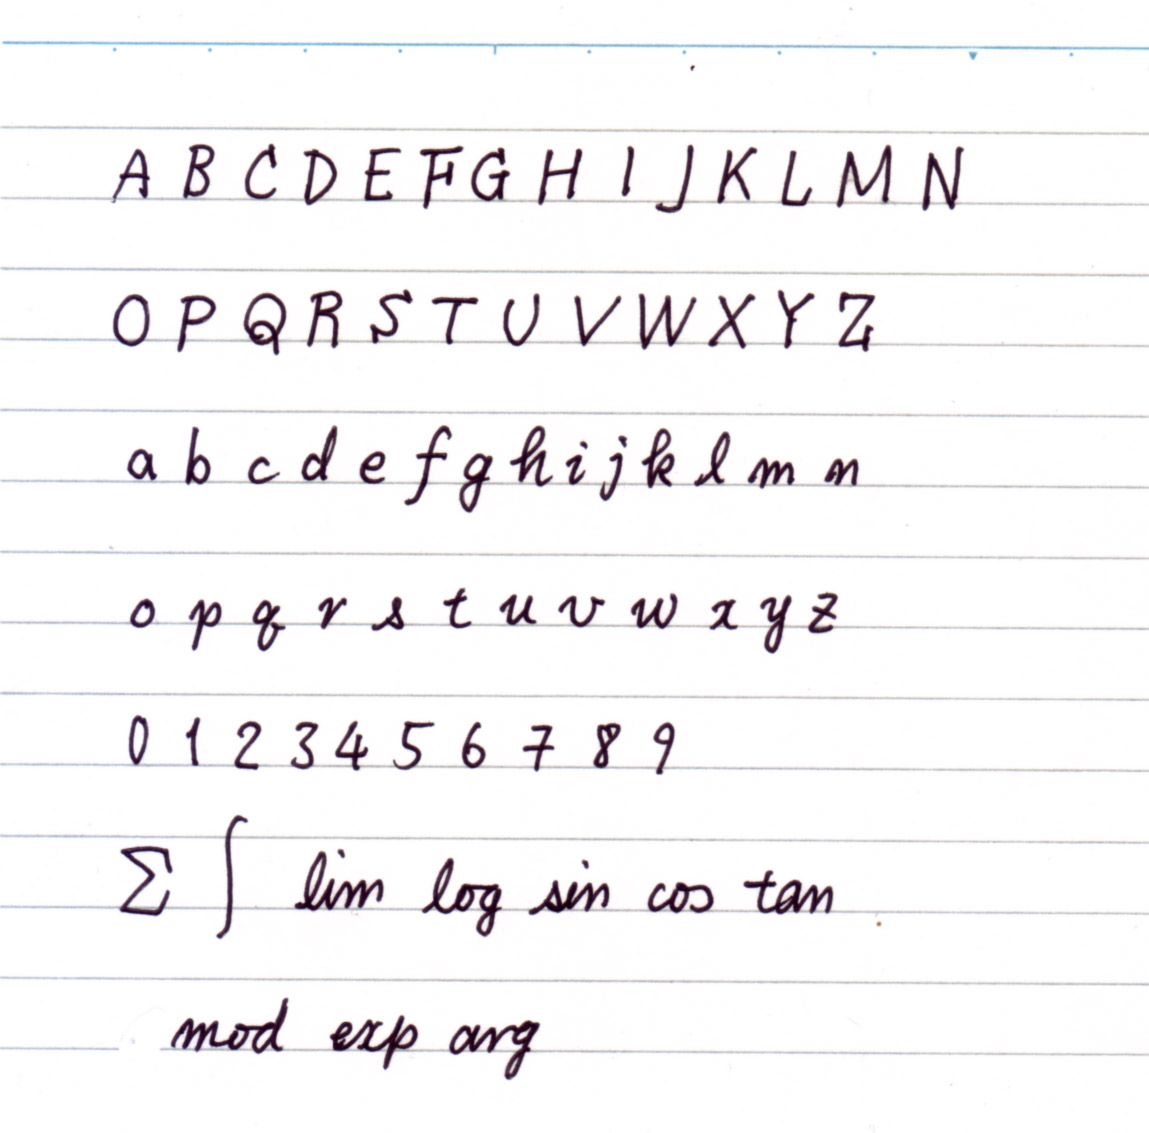 A B C D E F G H I J K L M N
O P Q R S T U V W X Y Z
a b c d e f g h i j k l m n
o p q r s t u v w x y z
0 1 2 3 4 5 6 7 8 9
∑ ∫ lim log sin cos tan
mod exp arg